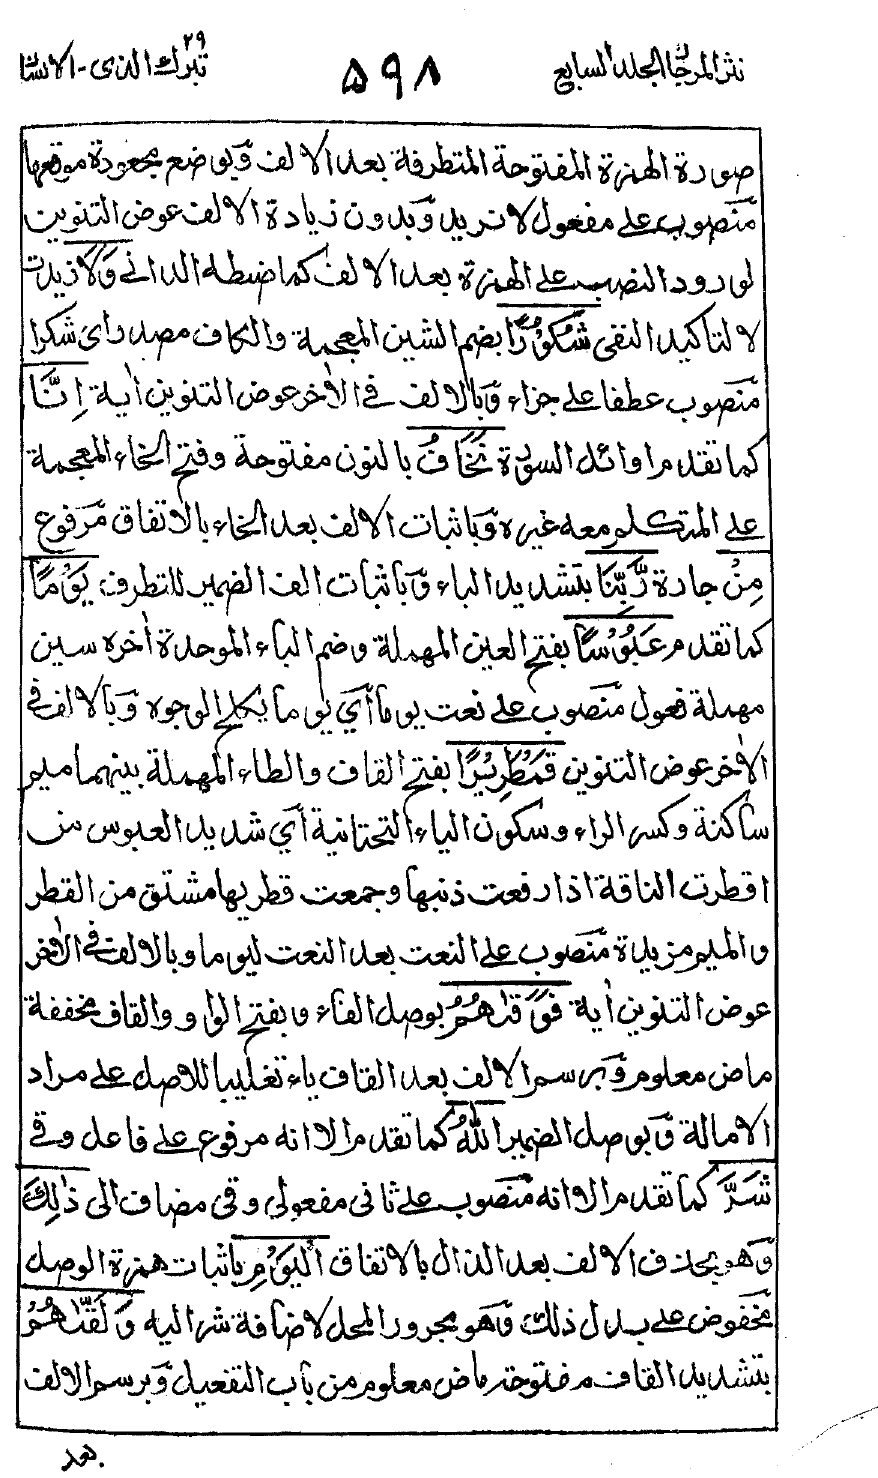 نثر المرجان الجلد السابع ٥٩٨ تبرك الذى ٢٩ - الانسان
صورة الهمزة المفتوحة المتطرفة بعد الالف وَبوضع مجعودة موقعها
منصوب على مفعول لا نريد وَبدون زيادة الالف عوض التنوين
لورود النصب على الهمزة بعد الالف كما ضبطه الدانى وَلَا زيدت
لا لتاكيد النفى شُكُوْرًا بضم الشين المعجمة والكاف مصدر اى شكرا
منصوب عطفا على جزاء وَبالالف فى الاٰخر عوض التنوين اٰية اِنَّا
كما تقدم اوائل السورة نَخَافُ بالنون مفتوحة وفتح الخاء المعجمة
على المتكلم معه غيره وَباثبات الالف بعد الخاء بالاتفاق مرفوع
مِنْ جارة رَّبِّنَا بتشديد الباء وَباثبات الف الضمير للتطرف يَوْمًا
كما تقدم عَبُوْسًا بفتح العين المهملة وضم الباء الموحدة اٰخره سين
مهملة فعول منصوب على نعت يوما أي يوما يكلح الوجوه وَبالالف فى
الاٰخر عوض التنوين قَمْطَرِيْرًا بفتح القاف والطاء المهملة بينهما ميم
ساكنة وكسر الراء وسكون الياء التحتانية أي شديد العبوس من
اقطرت الناقة اذا رفعت ذنبها وجمعت قطريها مشتق من القطر
والميم مزيدة منصوب على النعت بعد النعت ليوما وبالالف فى الاٰخر
عوض التنوين اٰية فَوَقٰىهُمُ بوصل الفاء وبفتح الواو والقاف مخففة
ماض معلوم وَبرسم الالف بعد القاف ياء تغليبا للاصل على مراد
الامالة وَبوصل الضمير اللّٰهُ كما تقدم الا انه مرفوع على فاعل وقى
شَرَّ كما تقدم الا انه منصوب على ثانى مفعولى وقى مضاف الى ذٰلِكَ
وَهو بحذف الالف بعد الذال بالاتفاق الْيَوْمِ باثبات همزة الوصل
مخفوض على بدل ذلك وَهو مجرور المحل لاضافة شر اليه وَلَقّٰىهُمْ
بتشديد القاف مفتوحة ماض معلوم من باب التفعيل وَبرسم الالف
بعد